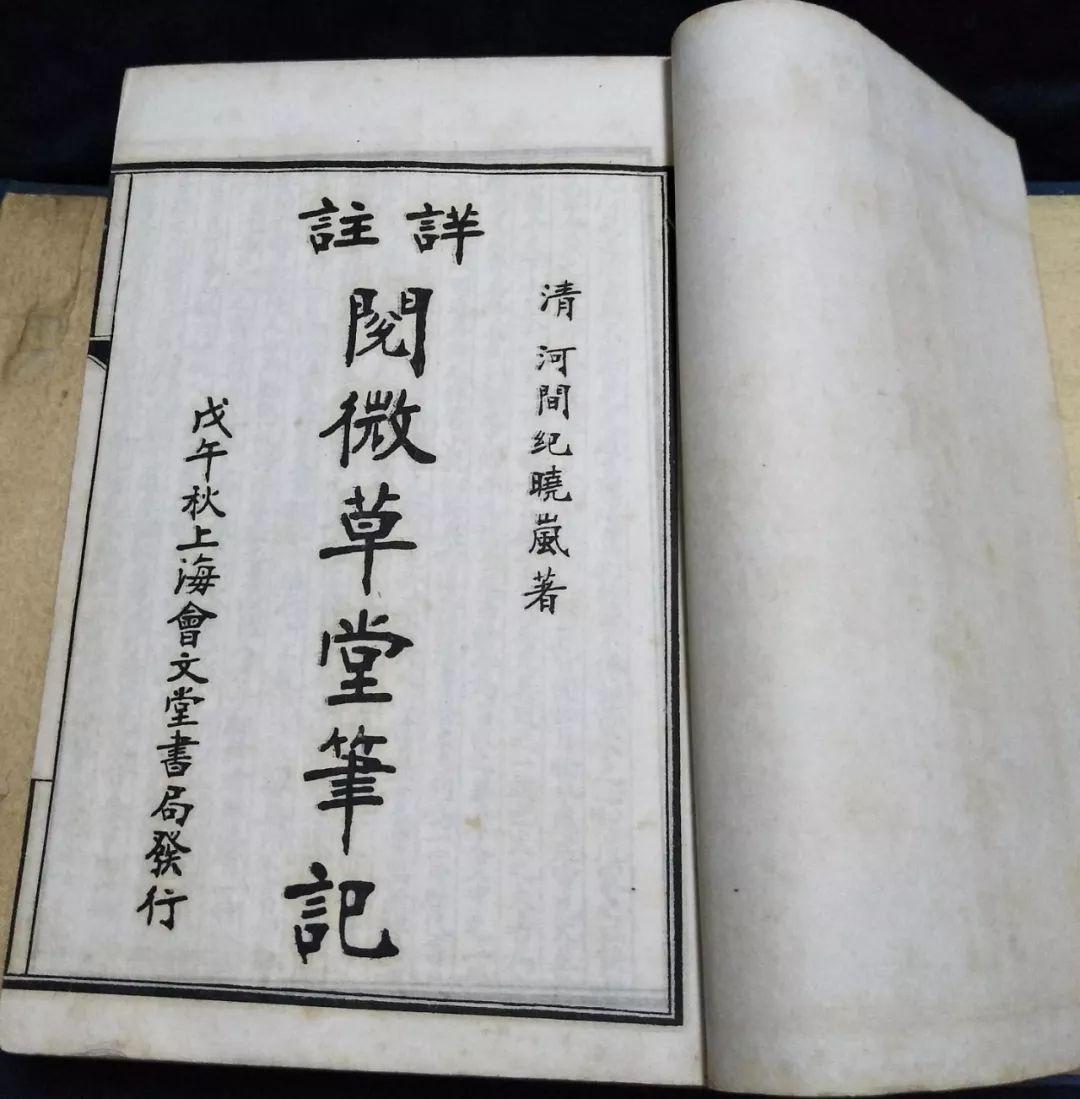 清 河間紀曉嵐著
詳註
閱微草堂筆記
戊午秋上海會文堂書局發行